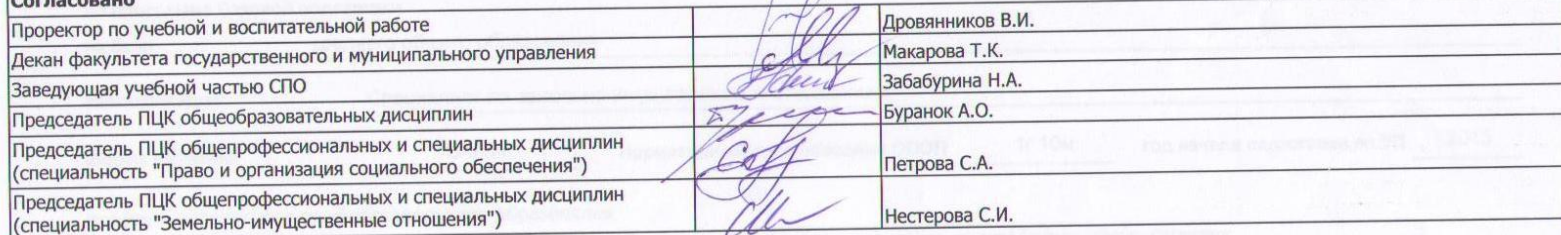 Согласовано
Проректор по учебной и воспитательной работе Дровянников В.И.
Декан факультета государственного и муниципального управления Макарова Т.К.
Заведующая учебной частью СПО Забабурина Н.А.
Председатель ПЦК общеобразовательных дисциплин Буранок А.О.
Председатель ПЦК общепрофессиональных и специальных дисциплин
(специальность "Право и организация социального обеспечения") Петрова С.А.
Председатель ПЦК общепрофессиональных и специальных дисциплин
(специальность "Земельно-имущественные отношения") Нестерова С.И.